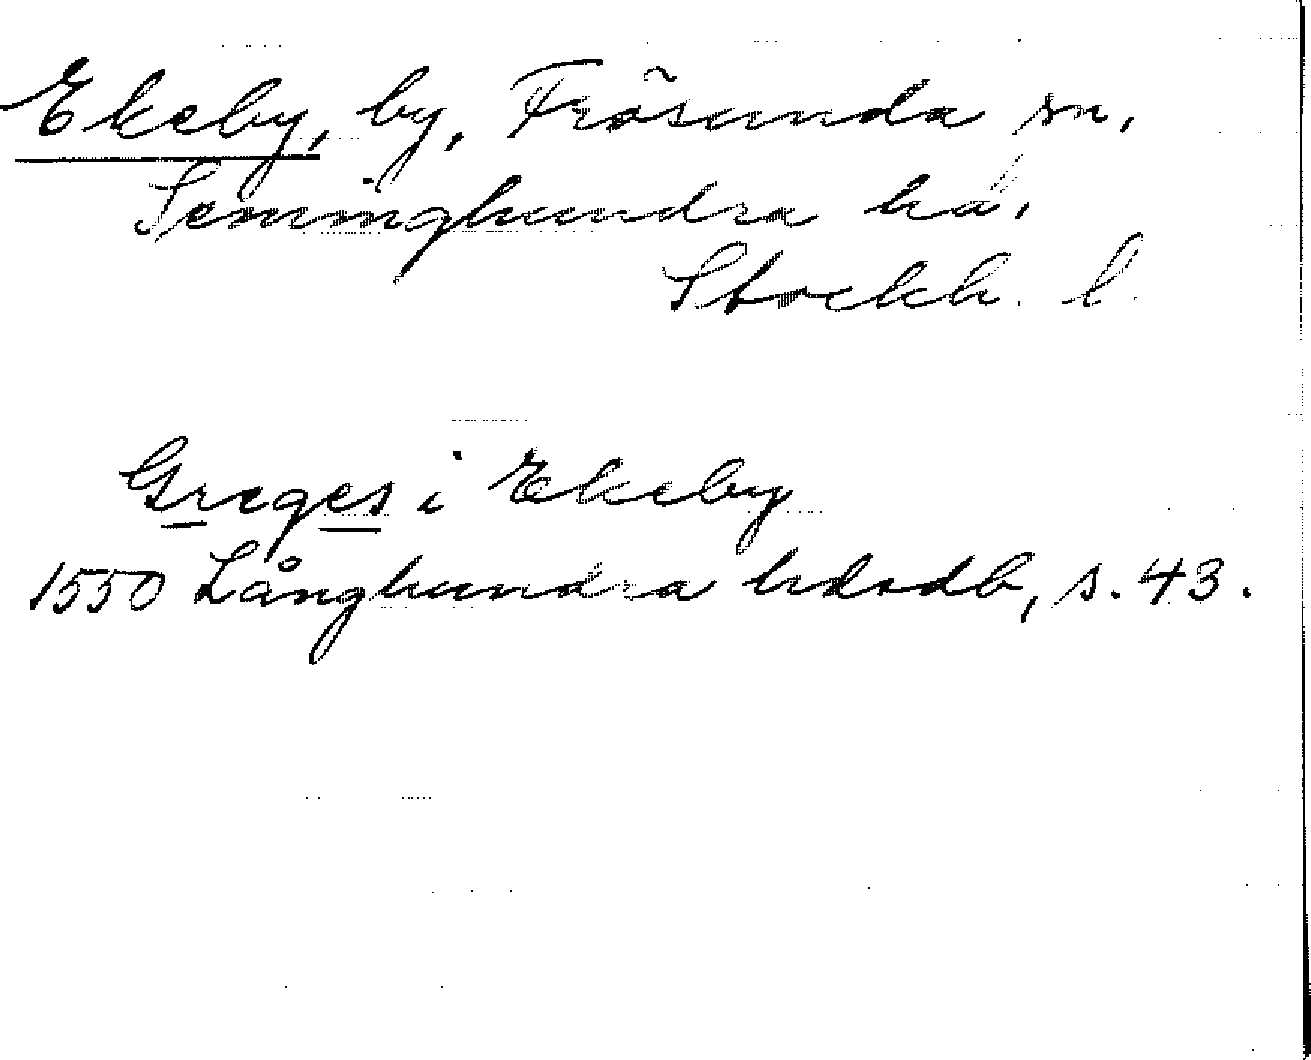 Ekeby, by, Frösunda sn,
Seminghundra hd.
Stockh. l.
Greges i Ekeby
1550 Långhundra hdsdb, s. 43.